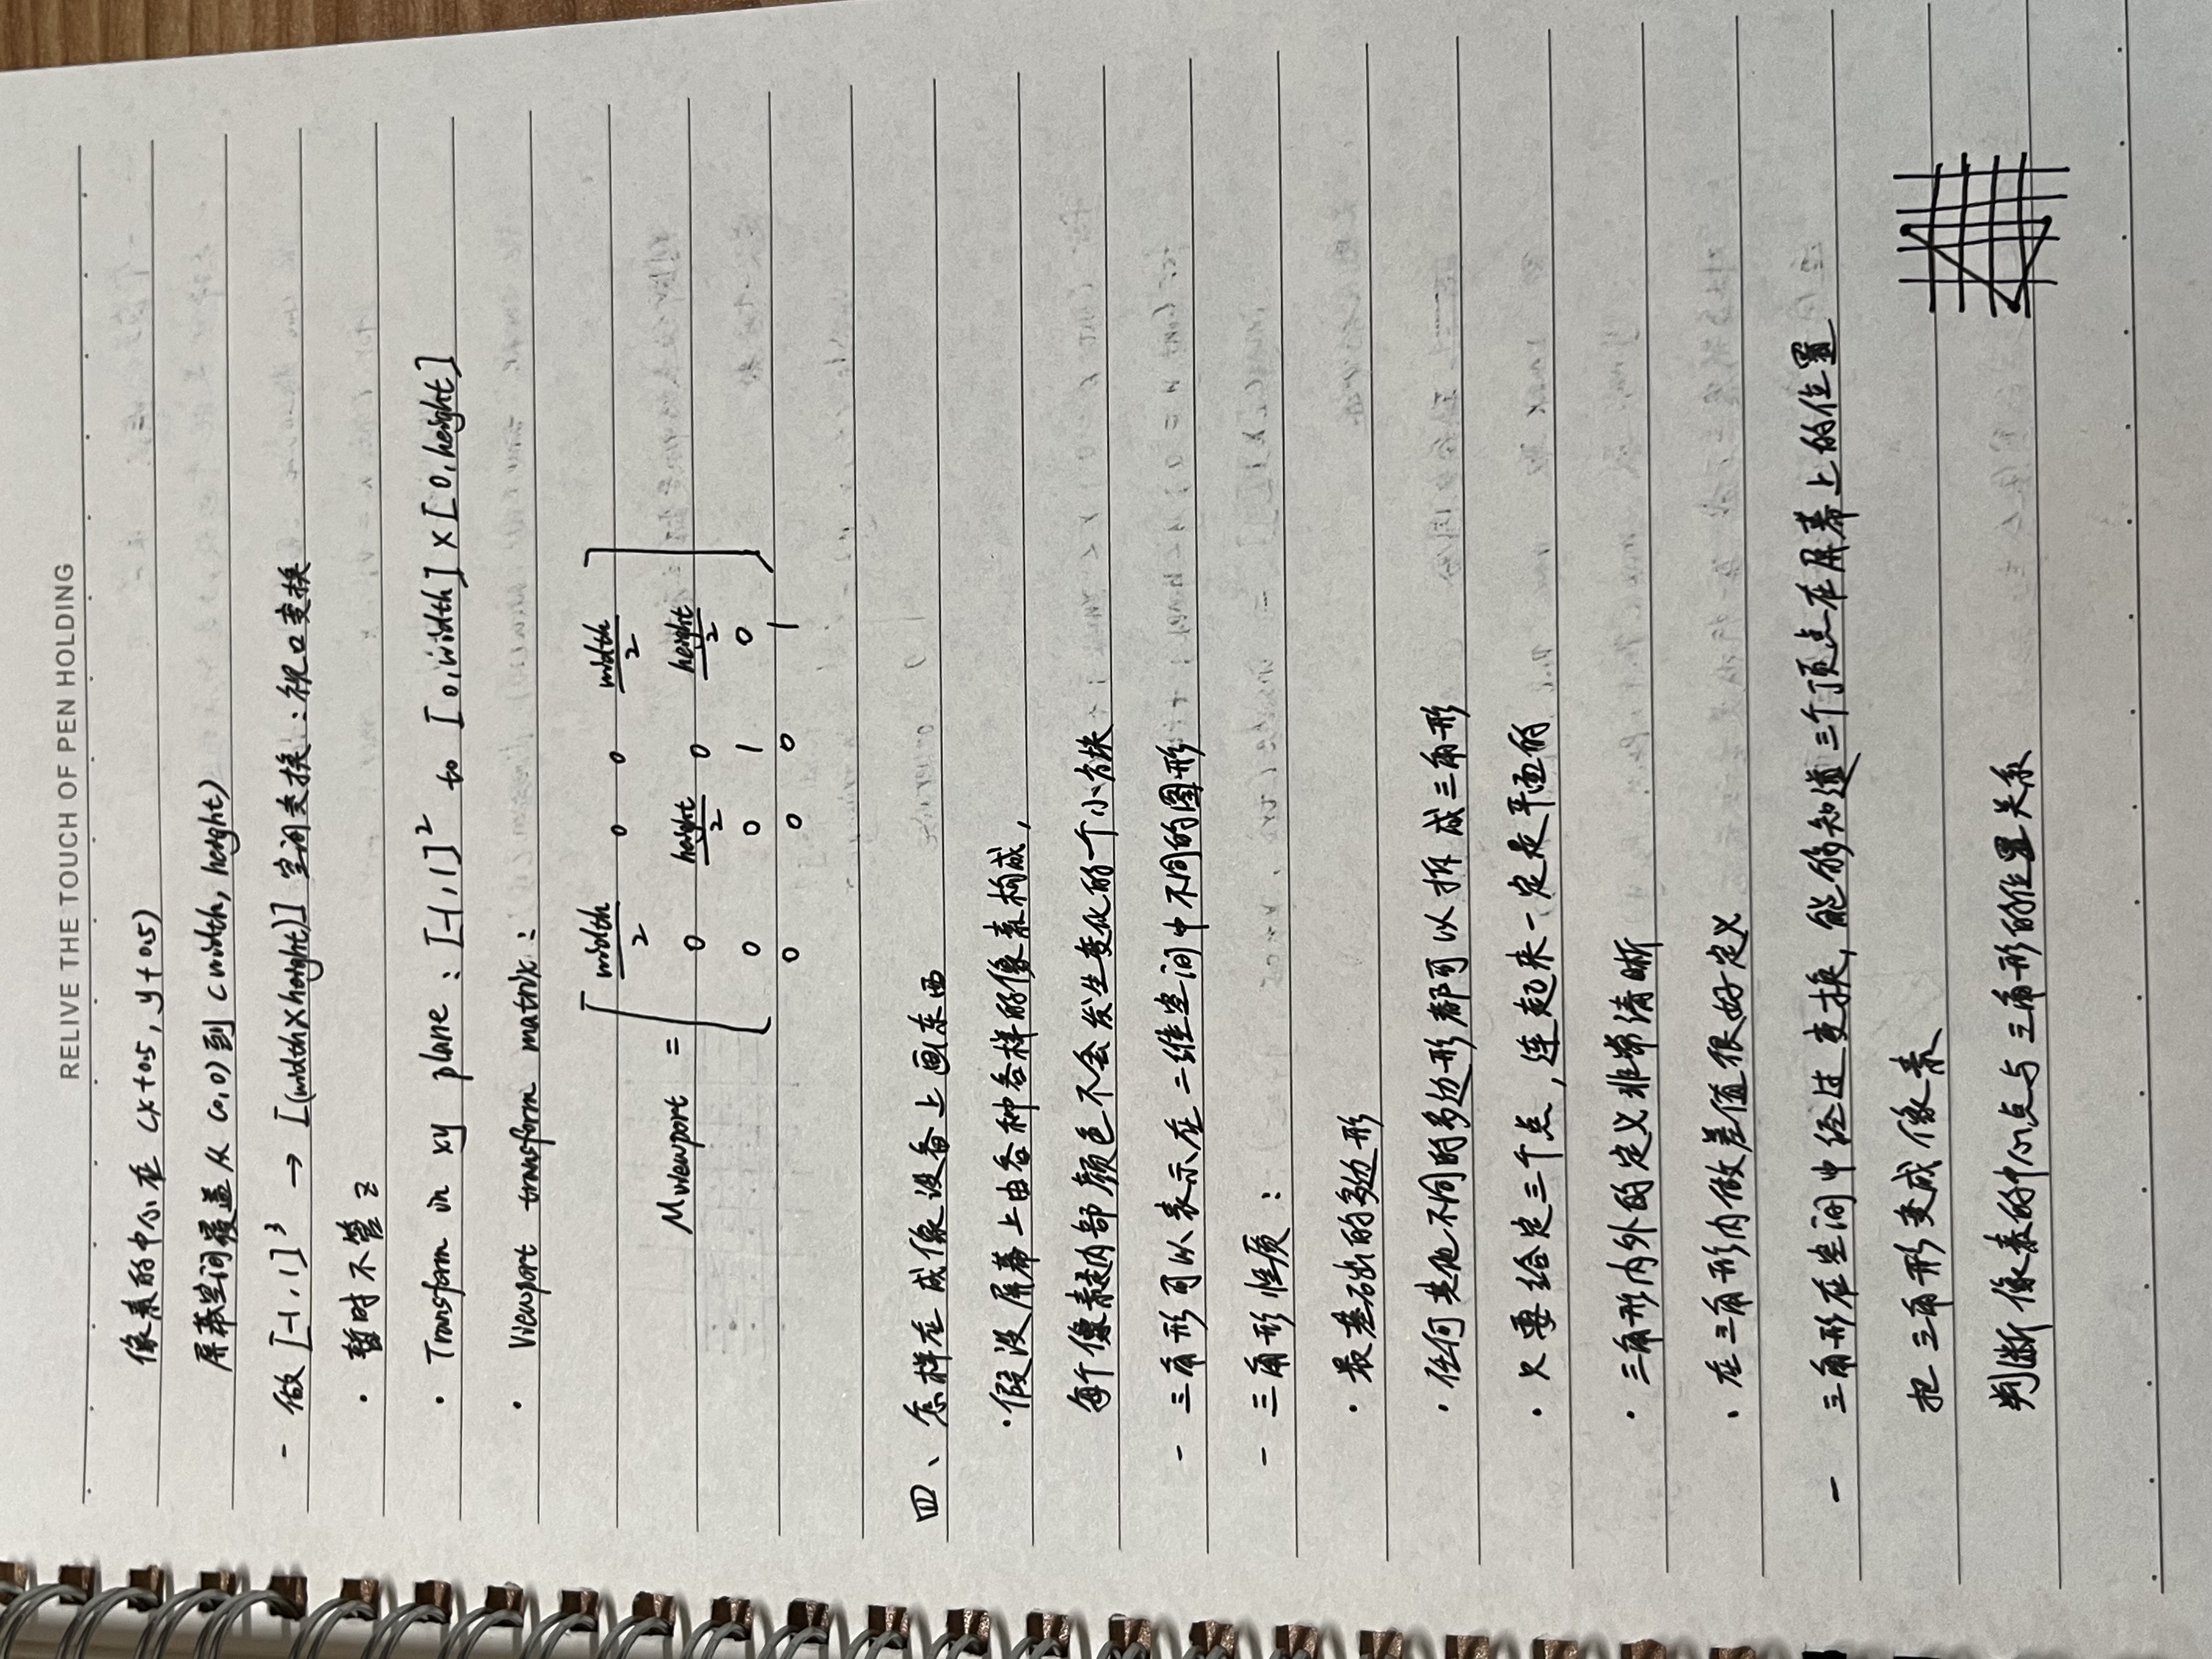 RELIVE THE TOUCH OF PEN HOLDING
像素的中心在 (x+0.5, y+0.5)
屏幕空间覆盖从 (0,0) 到 (width, height)
- 做 [-1,1]³ → [(width×height)] 空间变换:视口变换
· 暂时不管 z
· Transform in xy plane : [-1,1]² to [0,width]×[0,height]
· Viewport transform matrix:
width/2 0 0 width/2
Mviewport = 0 height/2 0 height/2
0 0 1 0
0 0 0 1
四、怎样在成像设备上画东西
·假设屏幕上由各种各样的像素构成,
每个像素内部颜色不会发生变化的一个小方块
- 三角形可以表示在二维空间中不同的图形
- 三角形性质:
· 最基础的多边形
· 任何其他不同的多边形都可以拆成三角形
· 只要给定三个点,连起来一定是平面的
· 三角形内外的定义非常清晰
· 在三角形内做差值很好定义
- 三角形在空间中经过变换,能够知道三个顶点在屏幕上的位置
把三角形变成像素
判断像素的中心点与三角形的位置关系